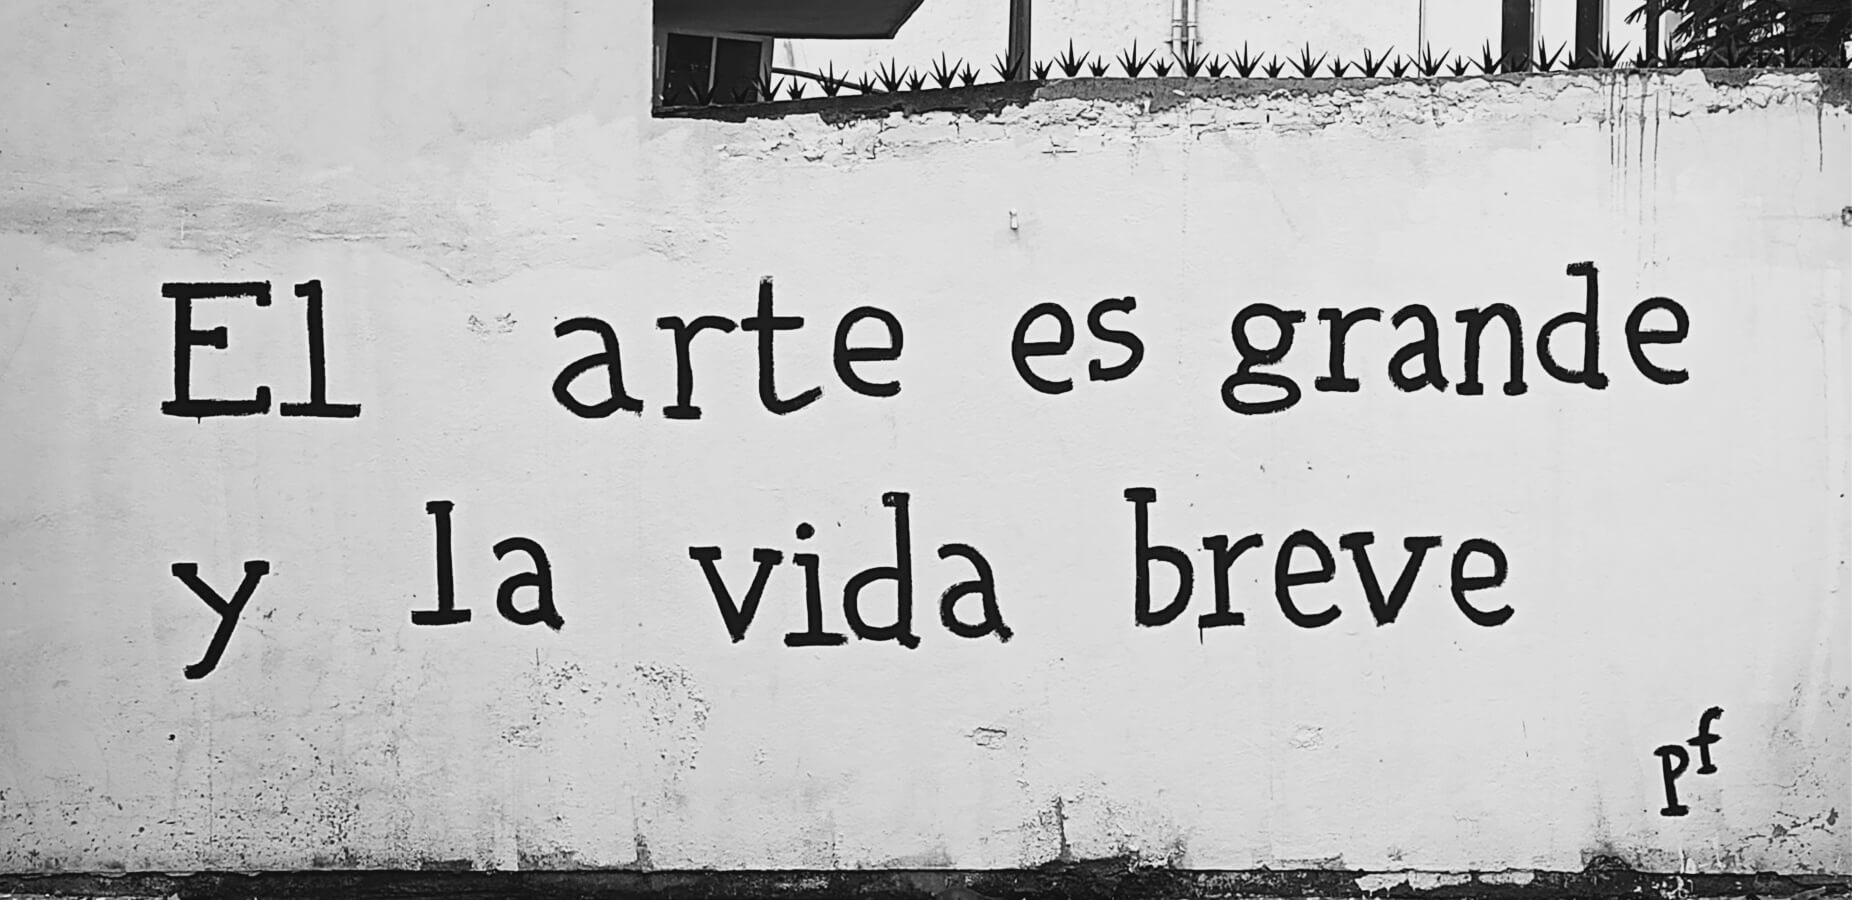 El arte es grande
y la vida breve
pf